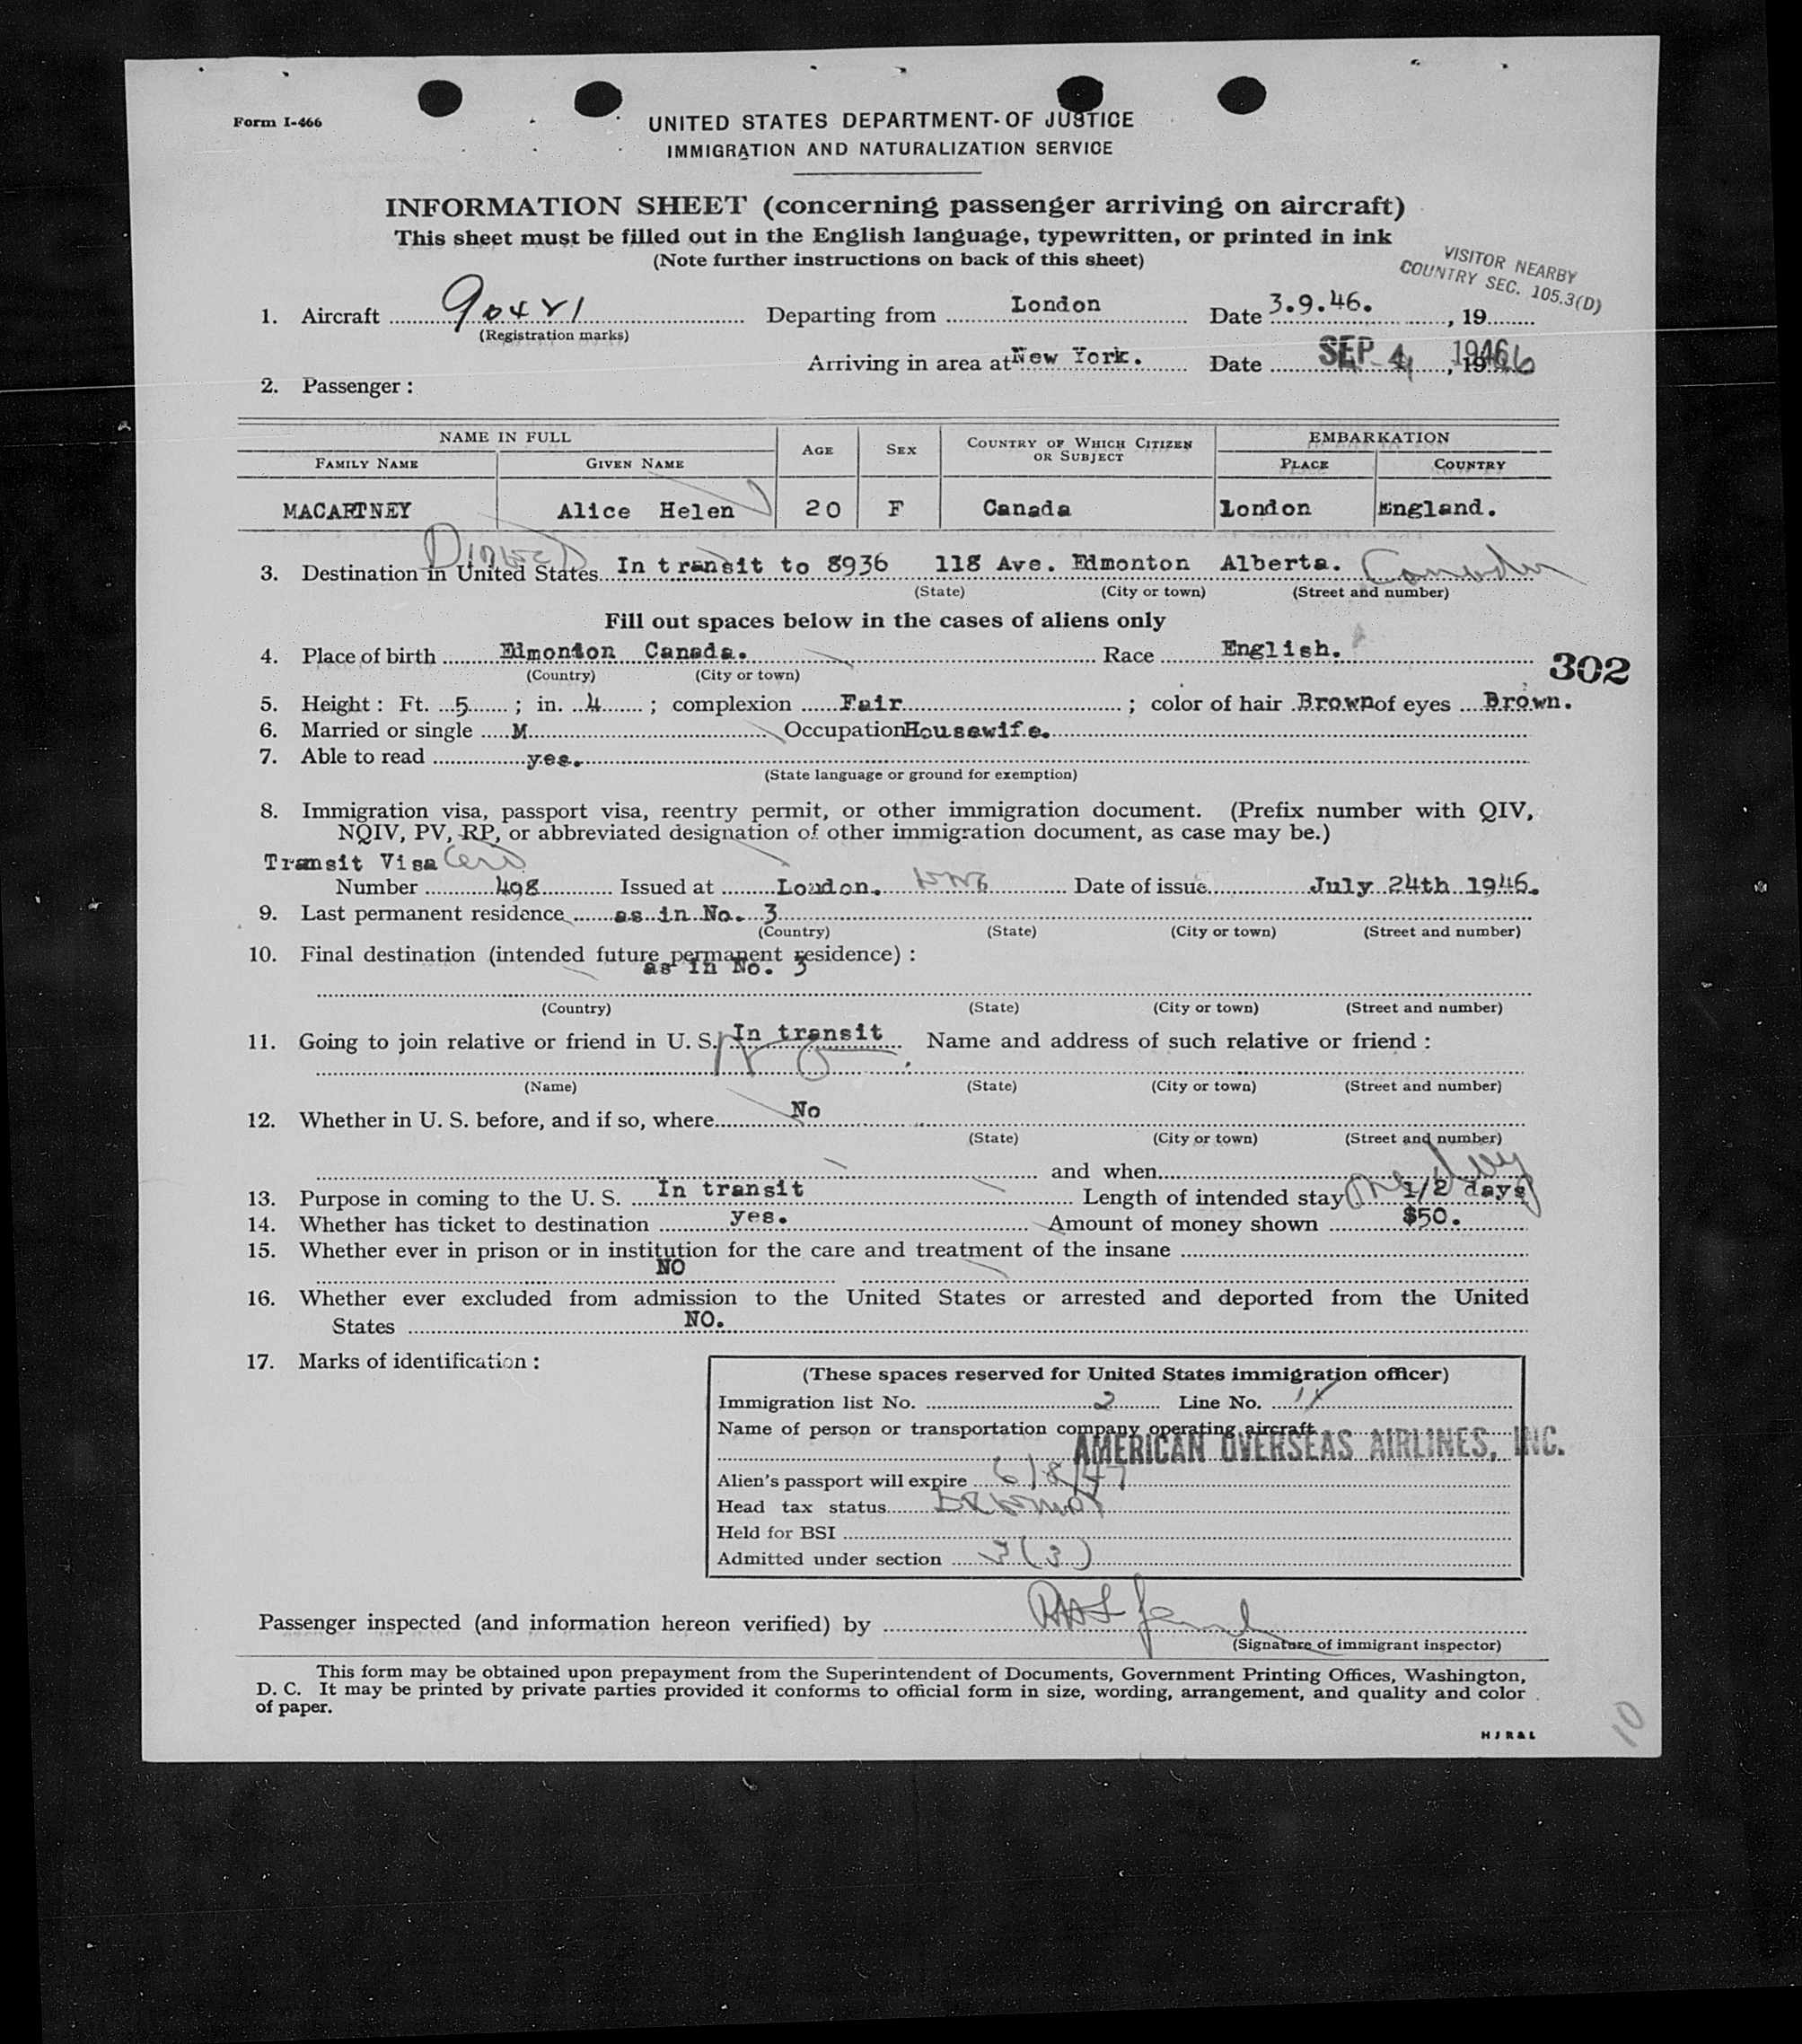 Form I-466
UNITED STATES DEPARTMENT OF JUSTICE
IMMIGRATION AND NATURALIZATION SERVICE
INFORMATION SHEET (concerning passenger arriving on aircraft)
This sheet must be filled out in the English language, typewritten, or printed in ink
(Note further instructions on back of this sheet)
VISITOR NEARBY
COUNTRY SEC. 105.3(D)
1. Aircraft Departing from London Date 3.9.46. , 19
(Registration marks)
Arriving in area at New York. Date SEP 4 1946
2. Passenger :
NAME IN FULL AGE SEX COUNTRY OF WHICH CITIZEN OR SUBJECT EMBARKATION
FAMILY NAME GIVEN NAME PLACE COUNTRY
MACARTNEY Alice Helen 20 F Canada London England.
3. Destination in United States In transit to 8936 118 Ave. Edmonton Alberta.
(State) (City or town) (Street and number)
Fill out spaces below in the cases of aliens only
4. Place of birth Edmonton Canada. Race English.
(Country) (City or town)
302
5. Height : Ft. 5 ; in. 4 ; complexion Fair ; color of hair Brown of eyes Brown.
6. Married or single M Occupation Housewife.
7. Able to read yes.
(State language or ground for exemption)
8. Immigration visa, passport visa, reentry permit, or other immigration document. (Prefix number with QIV,
NQIV, PV, RP, or abbreviated designation of other immigration document, as case may be.)
Transit Visa
Number 498 Issued at London. Date of issue July 24th 1946.
9. Last permanent residence as in No. 3
(Country) (State) (City or town) (Street and number)
10. Final destination (intended future permanent residence) :
as in No. 3
(Country) (State) (City or town) (Street and number)
11. Going to join relative or friend in U. S. In transit Name and address of such relative or friend :
(Name) (State) (City or town) (Street and number)
12. Whether in U. S. before, and if so, where No
(State) (City or town) (Street and number)
and when
13. Purpose in coming to the U. S. In transit Length of intended stay One day 1/2 days
14. Whether has ticket to destination yes. Amount of money shown $50.
15. Whether ever in prison or in institution for the care and treatment of the insane
NO
16. Whether ever excluded from admission to the United States or arrested and deported from the United
States NO.
17. Marks of identification :
(These spaces reserved for United States immigration officer)
Immigration list No. 2 Line No.
Name of person or transportation company operating aircraft
AMERICAN OVERSEAS AIRLINES, INC.
Alien's passport will expire 6/8/47
Head tax status
Held for BSI
Admitted under section 3(3)
Passenger inspected (and information hereon verified) by
(Signature of immigrant inspector)
This form may be obtained upon prepayment from the Superintendent of Documents, Government Printing Offices, Washington,
D. C. It may be printed by private parties provided it conforms to official form in size, wording, arrangement, and quality and color
of paper.
H J R & L
10